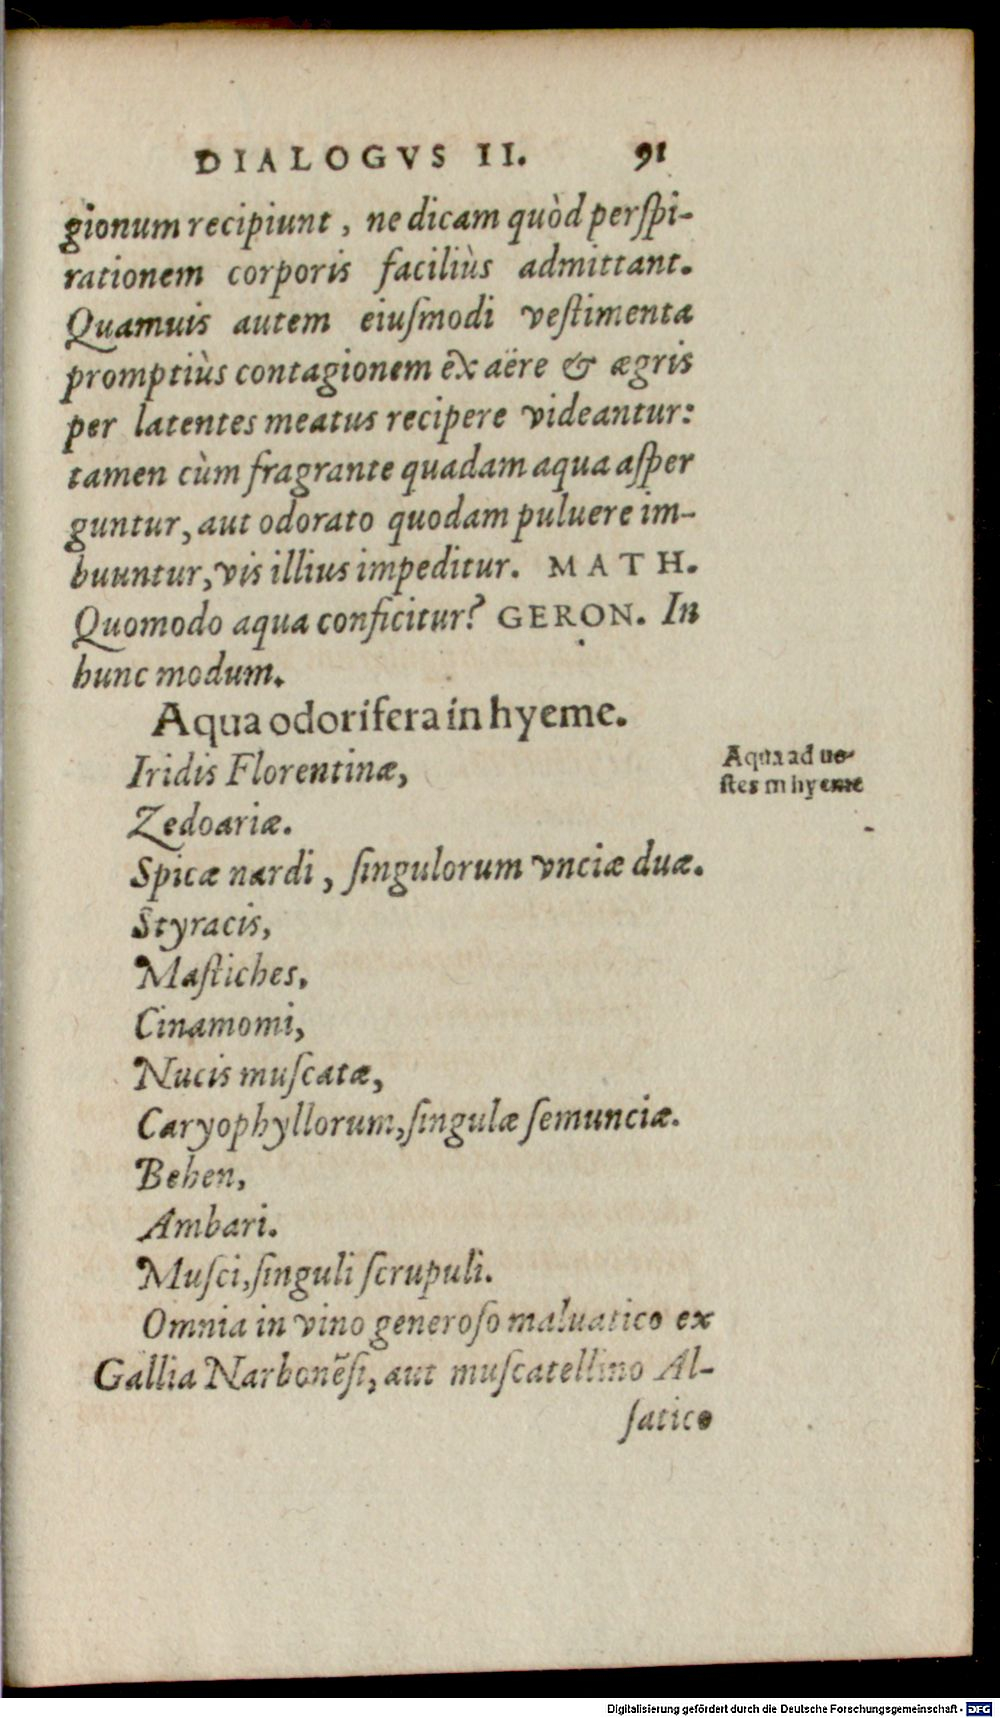 DIALOGVS II. 91
gionum recipiunt, ne dicam quòd perſpi-
rationem corporis faciliùs admittant.
Quamuis autem eiuſmodi veſtimenta
promptiùs contagionem ex aëre & ægris
per latentes meatus recipere videantur:
tamen cùm fragrante quadam aqua aſper
guntur, aut odorato quodam puluere im-
buuntur, vis illius impeditur. MATH.
Quomodo aqua conficitur? GERON. In
hunc modum.
Aqua odorifera in hyeme.
Aqua ad ue-
ſtes in hyeme
Iridis Florentinæ,
Zedoariæ.
Spicæ nardi, ſingulorum vnciæ duæ.
Styracis,
Maſtiches,
Cinamomi,
Nucis muſcatæ,
Caryophyllorum, ſingulæ ſemunciæ.
Behen,
Ambari.
Muſci, ſinguli ſcrupuli.
Omnia in vino generoſo maluatico ex
Gallia Narbonẽſi, aut muſcatellino Al-
ſatico
Digitalisierung gefördert durch die Deutsche Forschungsgemeinschaft - DFG